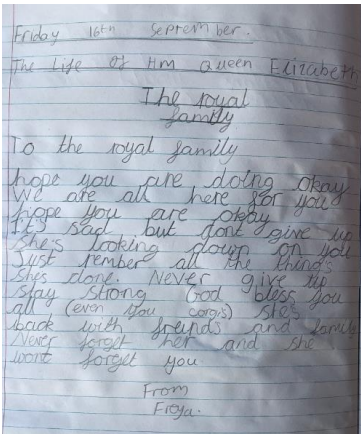 Friday 16th September.
The Life of HM Queen Elizabeth
The royal
family
To the royal family
hope you are doing okay
We are all here for you
hope you are okay
It's sad but dont give up
she's looking down on you
Just rember all the things
shes done. Never give up
stay strong God bless you
all (even you corgis) shes
back with freinds and family
Never forget her and she
wont forget you
From
Freya.